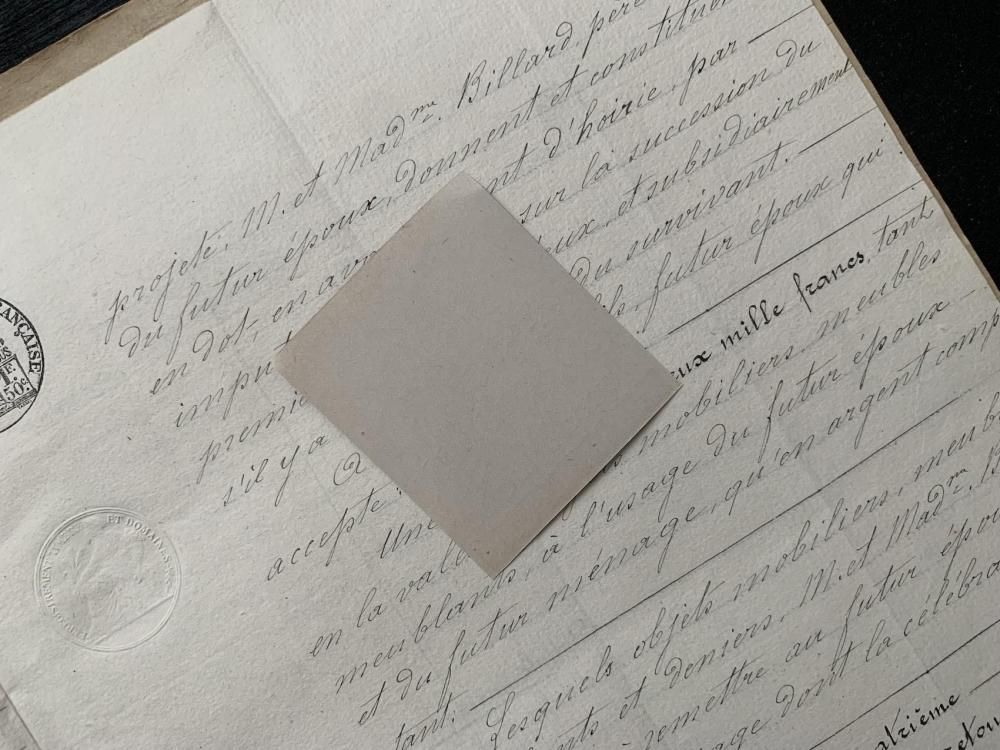 projeté, M. et Mad.me Billard, père
du futur époux, donnent et constituen
en dot, en ava nt d'hoirie, par
impu sur la succession du
premie eux, et subsidiairement
s'il y a du survivant.
à futur époux qui
accepte
Une eux mille francs, tant
en la vale mobiliers meubles
meublants, à l'usage du futur époux
et du futur ménage, qu'en argent comp
tant.
Lesquels objets mobiliers, meub
nts et deniers, M. et Mad.me B
remettre au futur épou
age dont la célébra
atrième
RANÇAISE
50c
ENREGISTREMENT ET DOMAINES